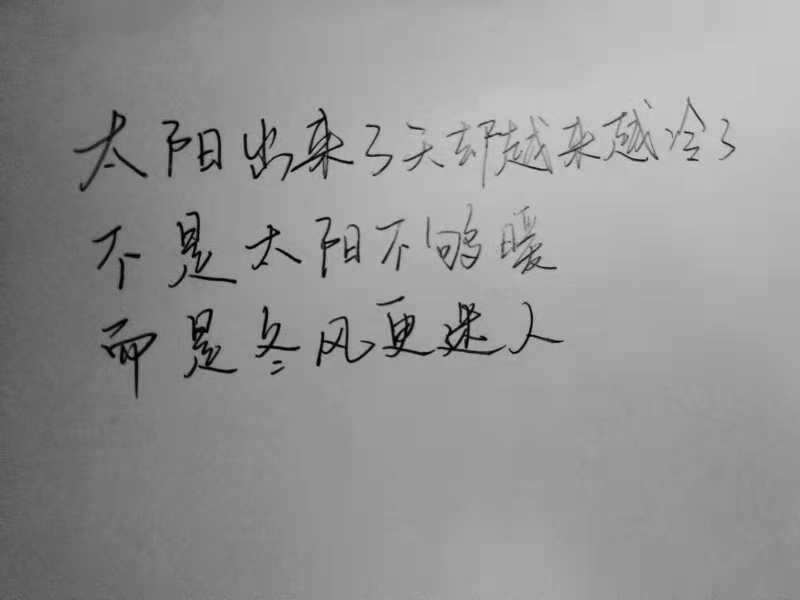 太阳出来了天却越来越冷了
不是太阳不够暖
而是冬风更迷人